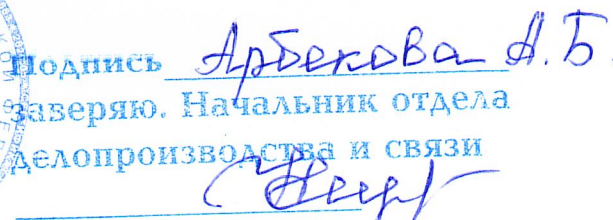 Подпись Арбекова А.Б.
заверяю. Начальник отдела
делопроизводства и связи